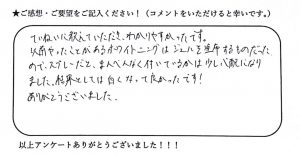 ★ご感想・ご要望をご記入ください！（コメントをいただけると幸いです。）
ていねいに教えていただき、わかりやすかったです。
以前やったことがあるホワイトニングはジェルを塗布するものだった
ので、スプレーだと、まんべんなく付いているかは少し心配になり
ました。結果としては白くなって良かったです！
ありがとうございました。
以上アンケートありがとうございました！！！